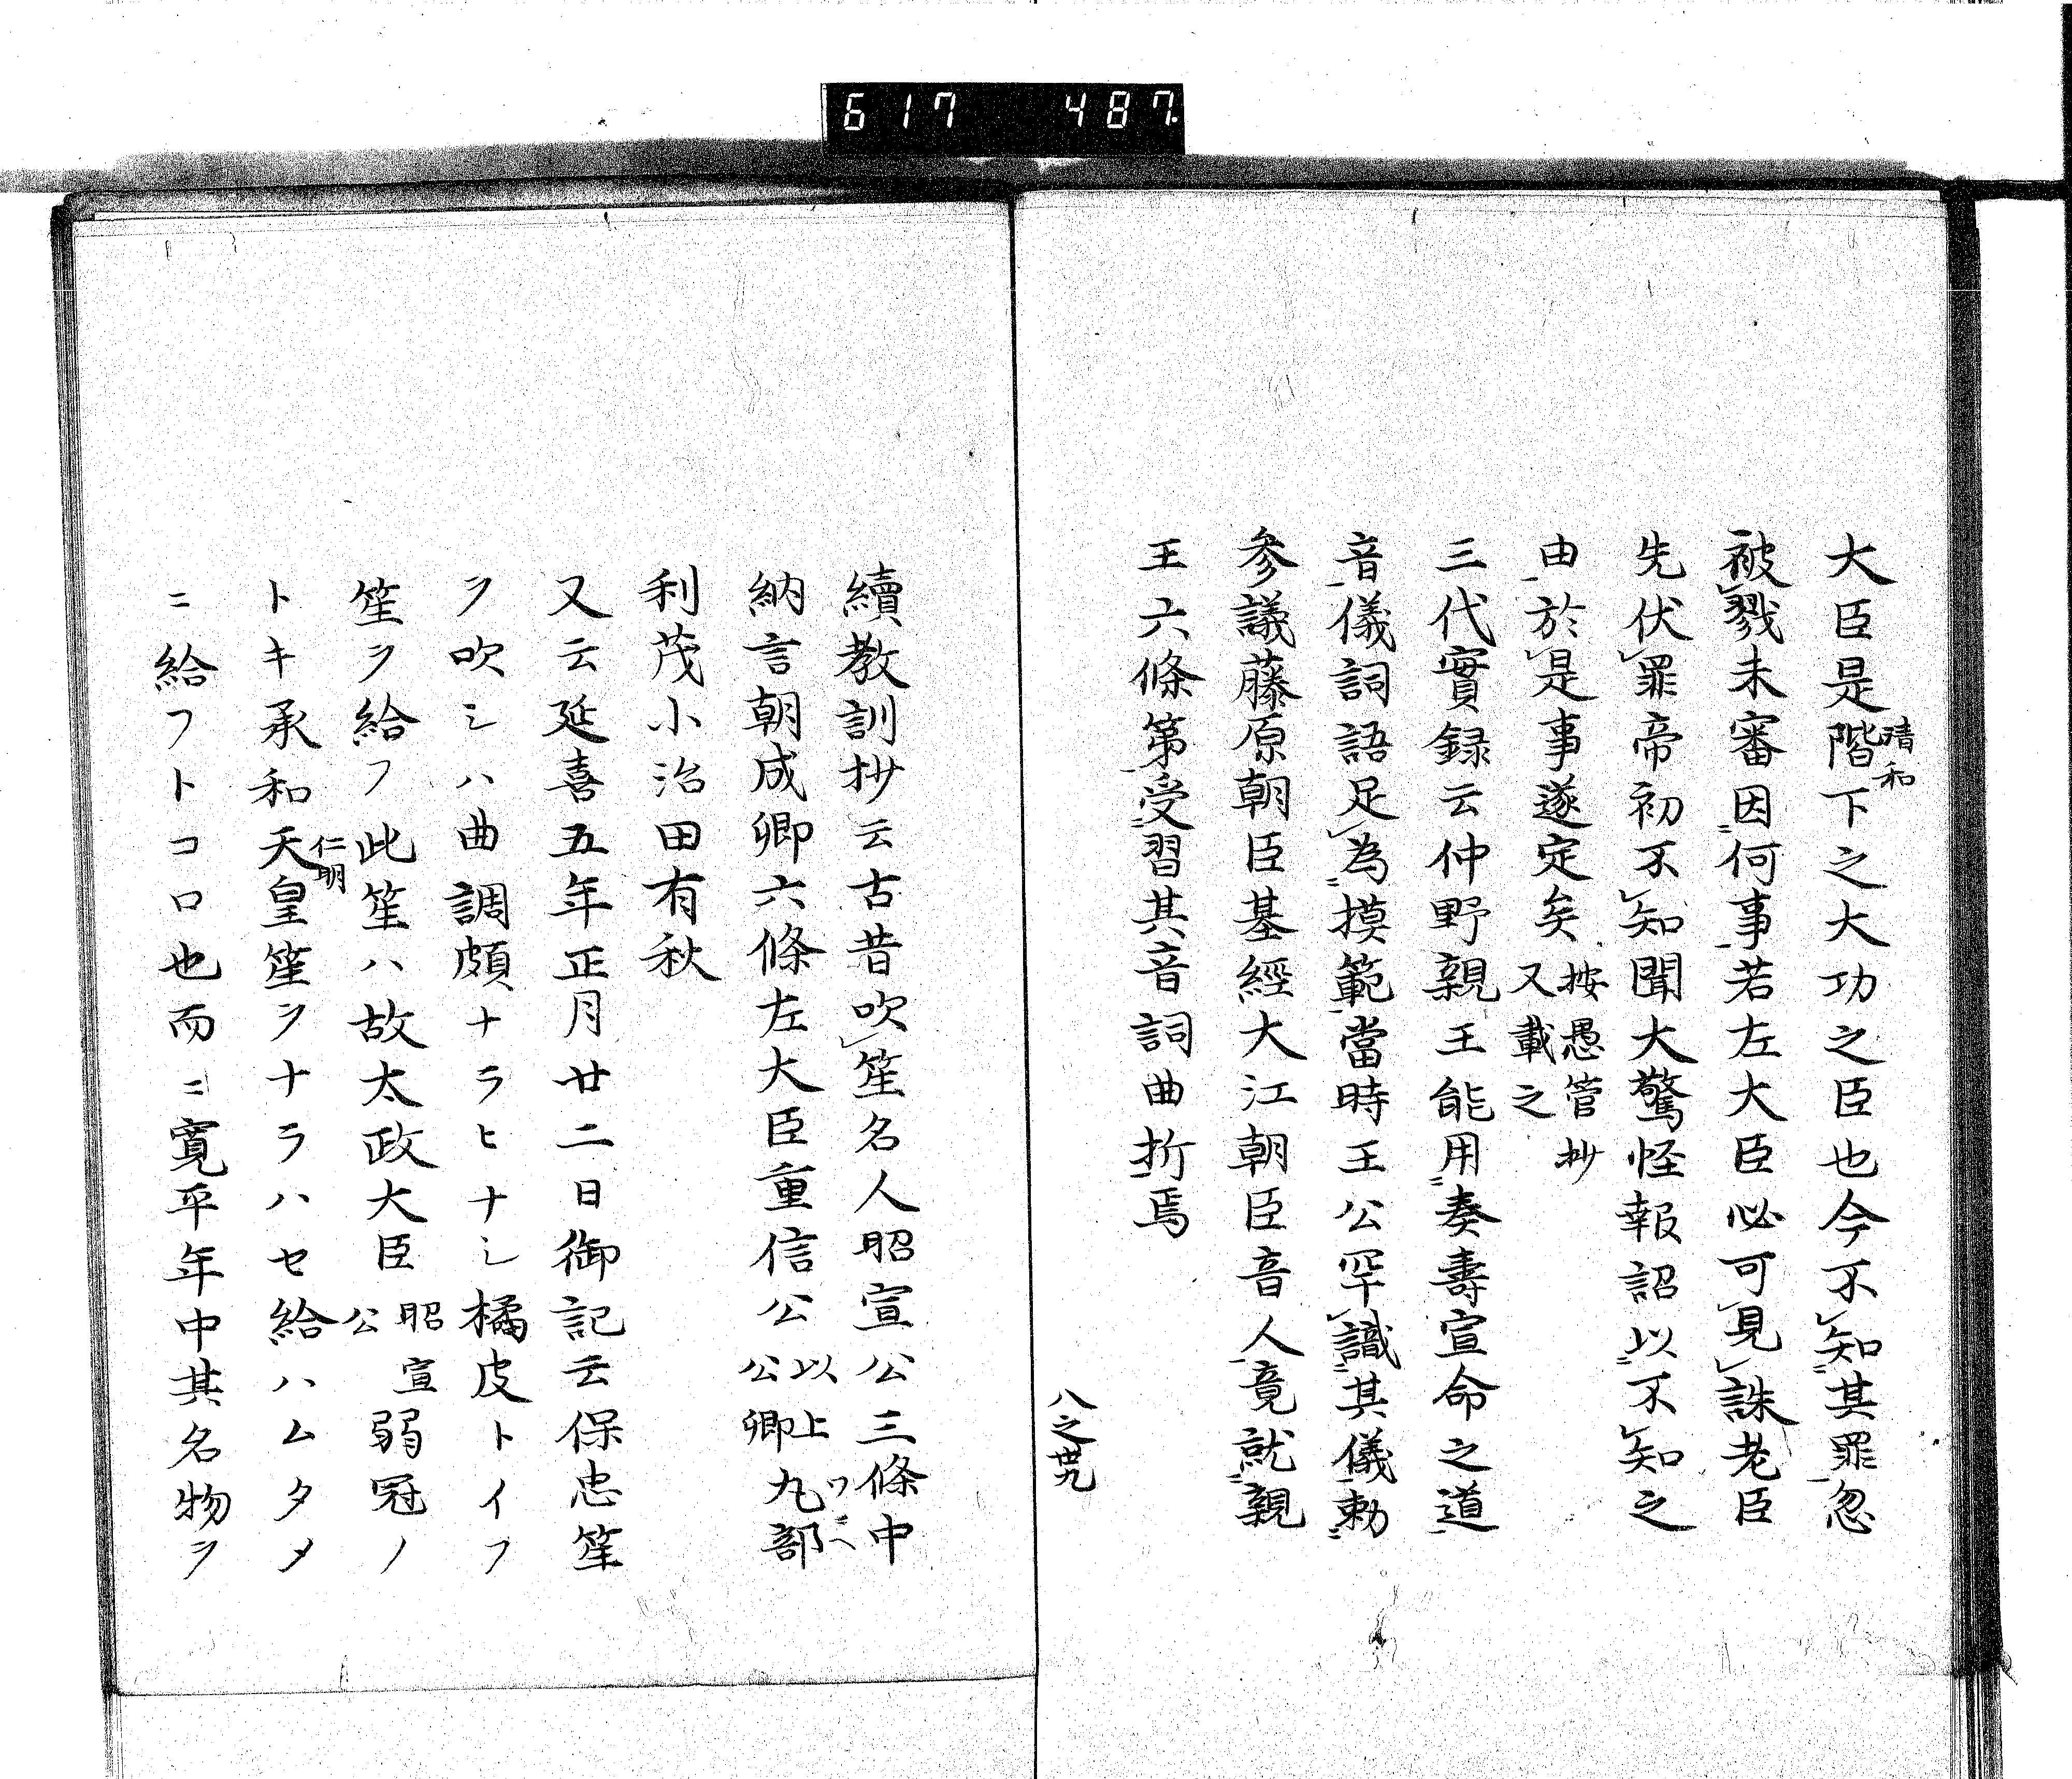 617 487.
大臣是階下之大功之臣也今不知其罪忽
清和
被戮未審因何事若左大臣必可見誅老臣
先伏罪帝初不知聞大驚怪報詔以不知之
由於是事遂定矣按愚管抄又載之
三代實録云仲野親王能用奏壽宣命之道
音儀詞語足為摸範當時王公罕識其儀勅
参議藤原朝臣基經大江朝臣音人竟就親
王六條第受習其音詞曲折焉
八之廿九
續教訓抄云古昔吹笙名人昭宣公三條中
納言朝成卿六條左大臣重信公以上公卿九部
ワニヘ
利茂小治田有秋
又云延喜五年正月廿二日御記云保忠笙
ヲ吹シハ曲調頗ナラヒナシ橘皮トイフ
笙ヲ給フ此笙ハ故太政大臣昭宣公弱冠ノ
トキ承和天皇笙ヲナラハセ給ハムタメ
仁明
ニ給フトコロ也而ニ寛平年中其名物ヲ